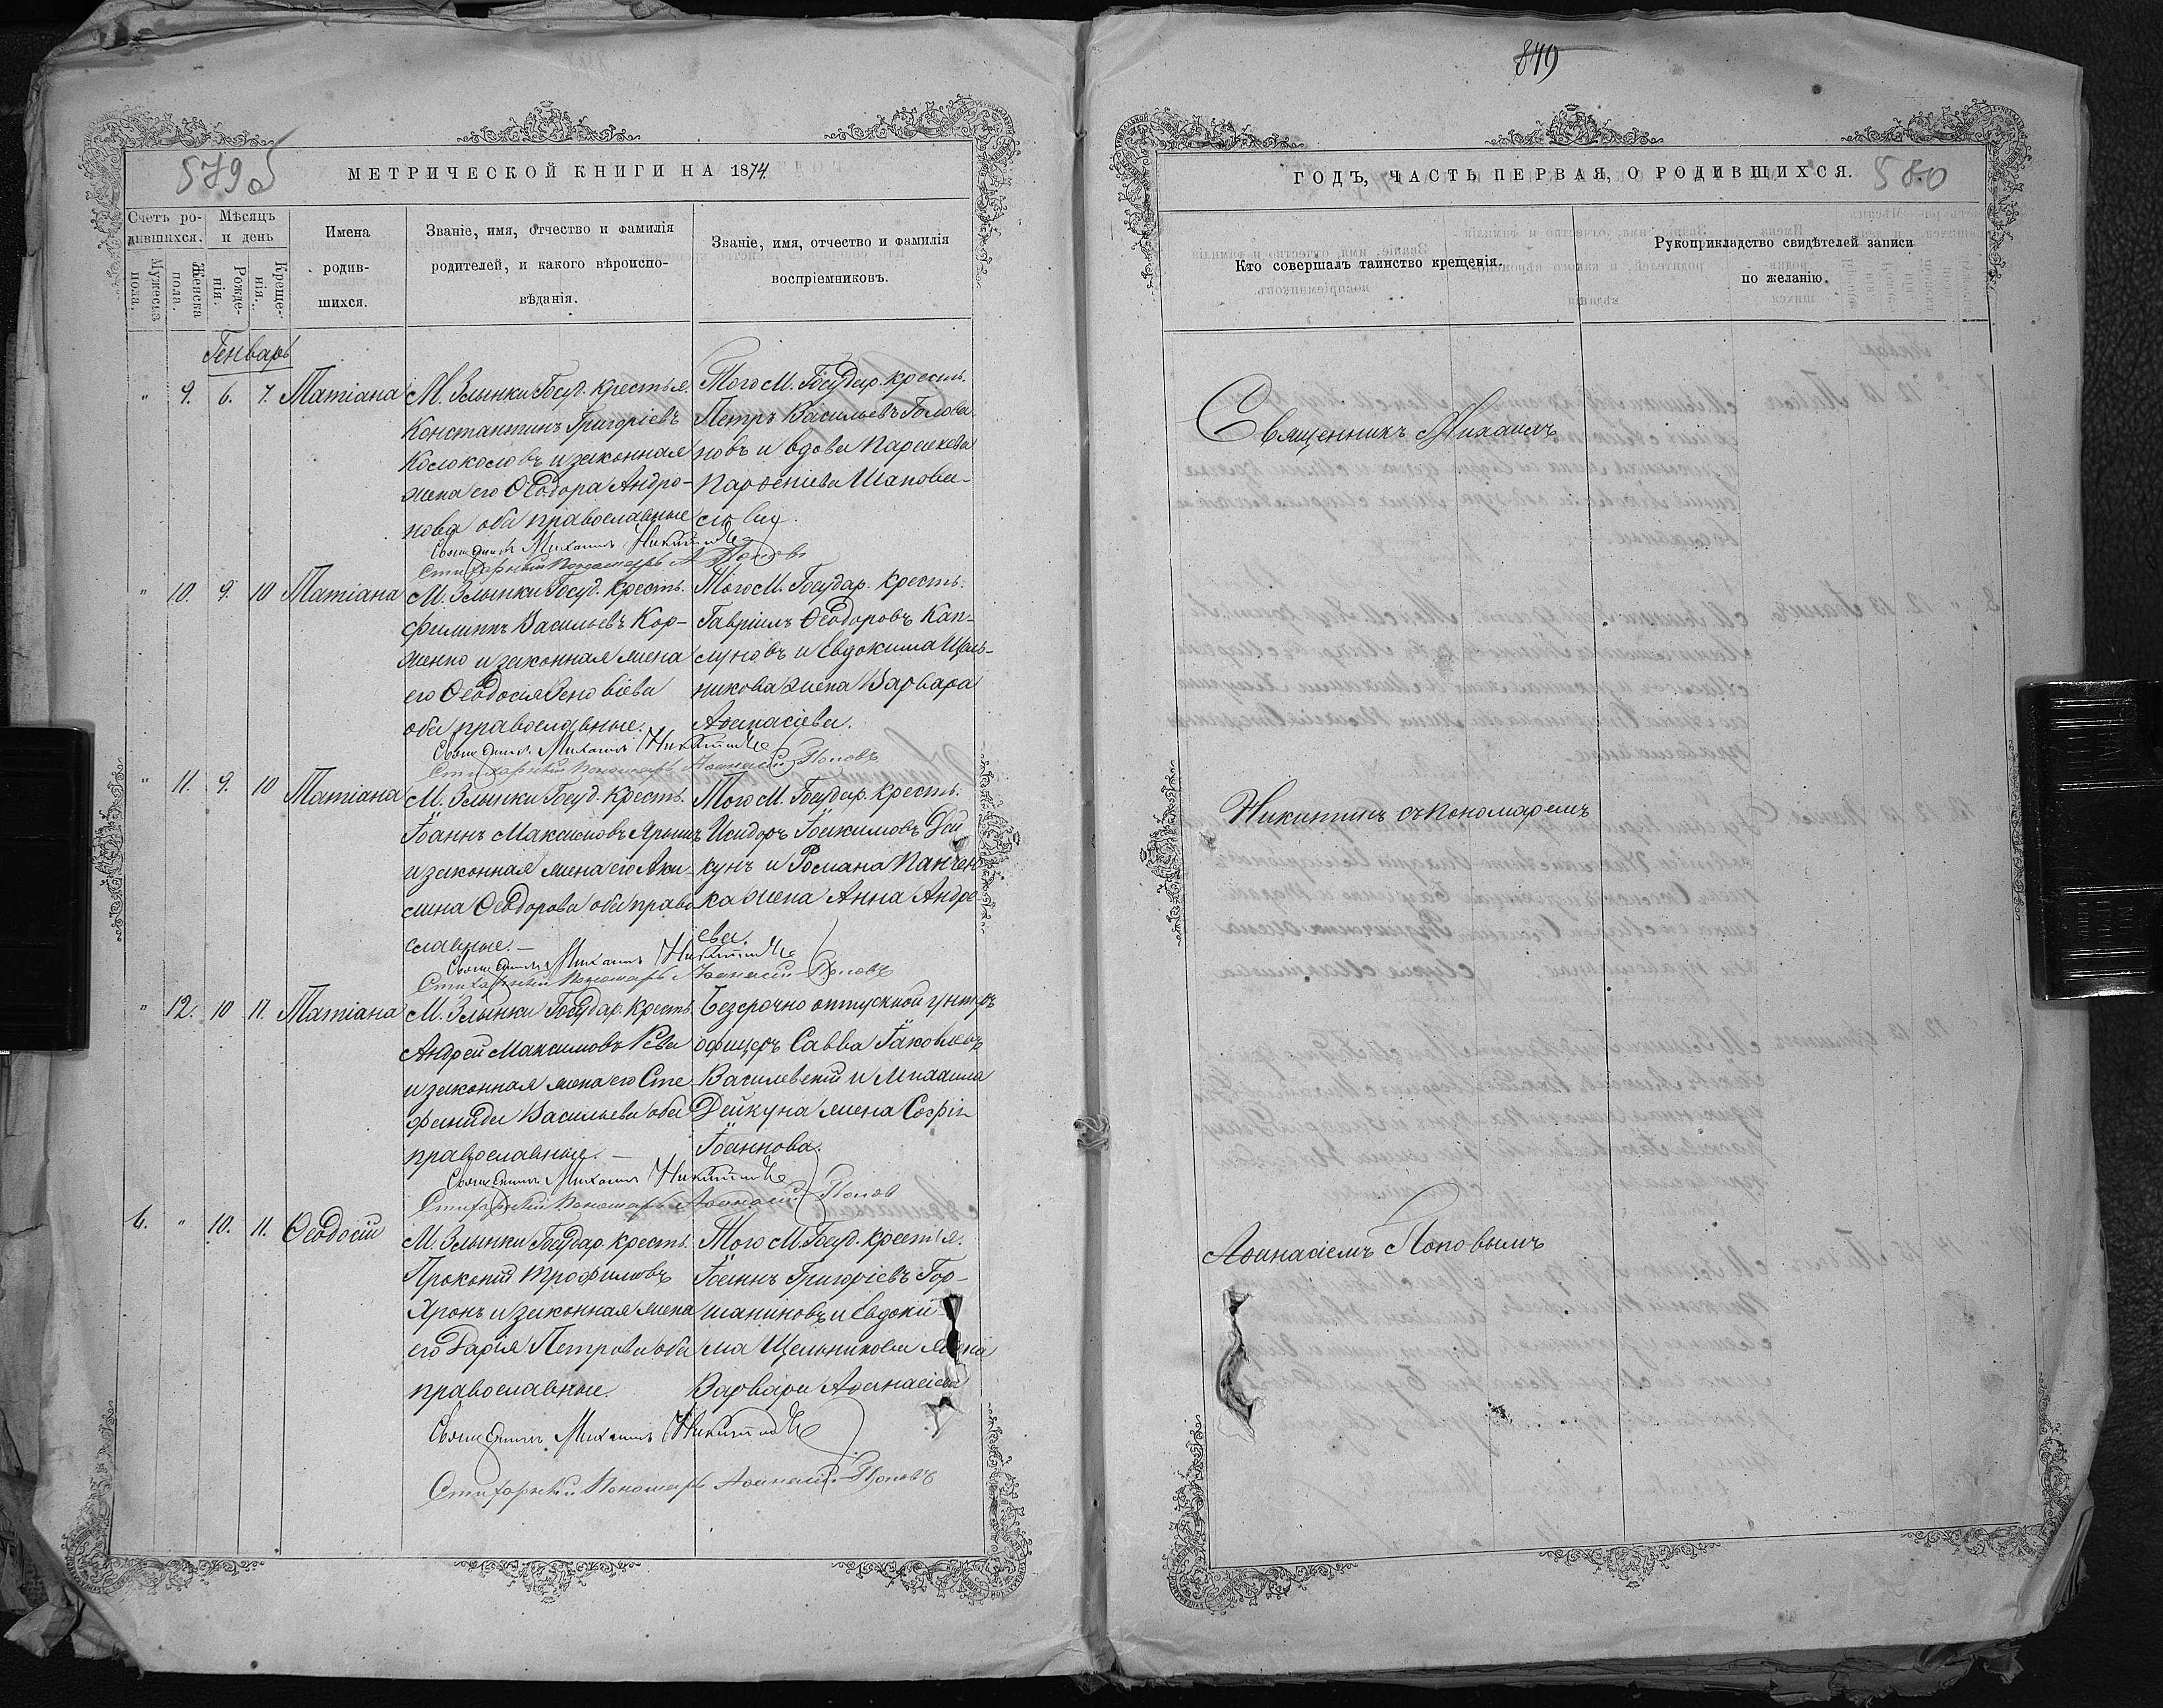 849
579 об
МЕТРИЧЕСКОЙ КНИГИ НА 1874
Счетъ ро-
дившихся.
Мѣсяцъ
и день
Мужеска
пола.
Женска
пола.
Рожде-
нія.
Креще-
нія.
Имена
родив-
шихся.
Званіе, имя, отчество и фамилія
родителей, и какого вѣроиспо-
вѣданія.
Званіе, имя, отчество и фамилія
воспріемниковъ.
Генварь
" 9. 6. 7. Татіана
М. Злынки Госуд. крестья.
Константинъ Григоріевъ
Колоколовъ и законная
жена его Ѳеодора Андро-
нова оба православные
Того М. Государ. кресть.
Петръ Васильевъ Голова
новъ и вдова Параскева
Парѳеніева Шапова-
Священникъ Михаилъ Никитинъ
Стихарный Пономарь А Поповъ
" 10. 9. 10 Татіана
М. Злынки Госуд. кресть.
Филиппъ Васильевъ Кор-
жего законная жена
его Ѳеодосія Зеновіева
оба православные.
Того М. Государ. кресть.
Гавріилъ Ѳеодоровъ Кап-
луновъ и Евдокима Щель-
никова жена Варвара
Аѳанасіева.
Священникъ Михаилъ Никитинъ
Стихарный Пономарь Аѳанасій Поповъ
" 11. 9. 10 Татіана
М. Злынки Госуд. кресть.
Іоаннъ Максимовъ Ярышъ
и законная жена его Аки-
лина Ѳеодорова оба право
славные.—
Того М. Государ. кресть.
Исидоръ Іоакимовъ Дей
кунъ и Романа Панчен
ка жена Анна Андре
ева.
Священникъ Михаилъ Никитинъ
Стихарный Пономарь Аѳанасій Поповъ
" 12. 10 11. Татіана
М. Злынки Государ. кресть
Андрей Максимовъ Рева
и законная жена его Сте
фанида Васильева оба
православные.—
Безсрочно отпускной унтеръ
офицеръ Савва Іаковлевъ
Василевскій и Михаила
Дейкуна жена Софія
Іоаннова.
Священникъ Михаилъ Никитинъ
Стихарный Пономарь Аѳанасій Поповъ
6. " 10. 11. Ѳеодосій
М. Злынки Государ. кресть.
Прокопій Трофимовъ
Хронъ и законная жена
его Дарія Петрова оба
православные.
Того М. Госуд. крестья.
Іоаннъ Григоріевъ Гор-
шаниковъ и Евдоки
ма Щельникова жена
Варвара Аѳанасіева
Священникъ Михаилъ Никитинъ
Стихарный Пономарь Аѳанасій Поповъ
ГОДЪ, ЧАСТЬ ПЕРВАЯ, О РОДИВШИХСЯ.
580
Кто совершалъ таинство крещенія.
Рукоприкладство свидѣтелей записи
по желанію.
Священникъ Михаилъ
Никитинъ съ пономаремъ
Аѳанасіемъ Поповымъ